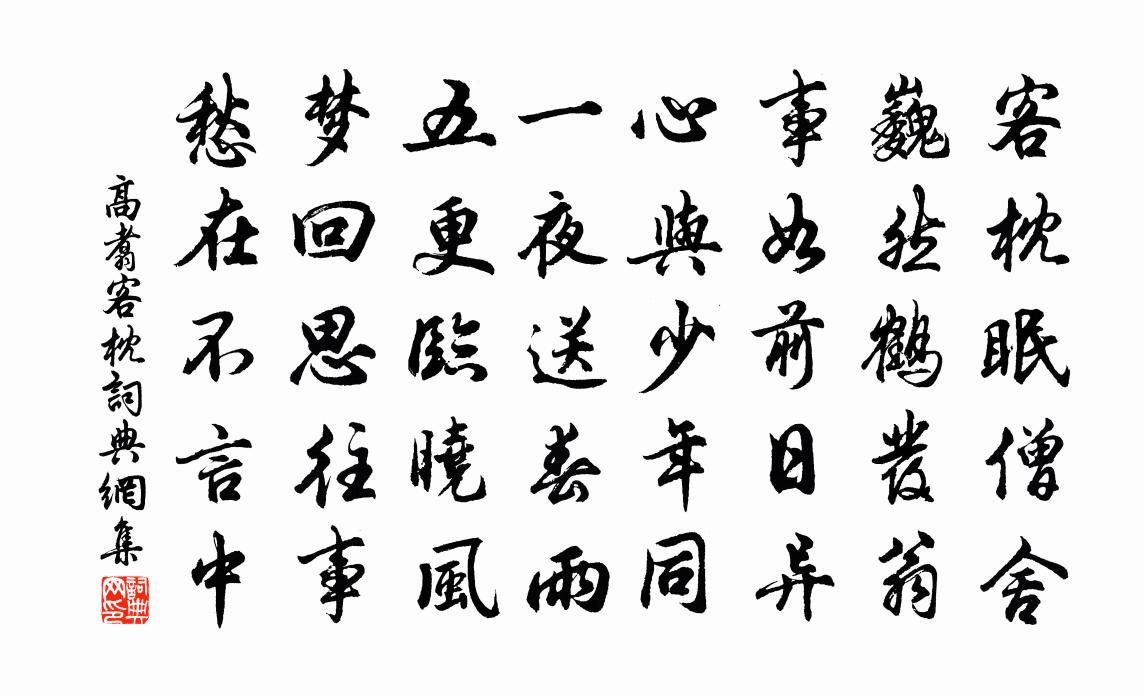 客枕眠僧舍
巍然鹤发翁
事如前日异
心與少年同
一夜送春雨
五更臨曉風
梦回思往事
愁在不言中
高翥客枕詞典網集
詞典网印